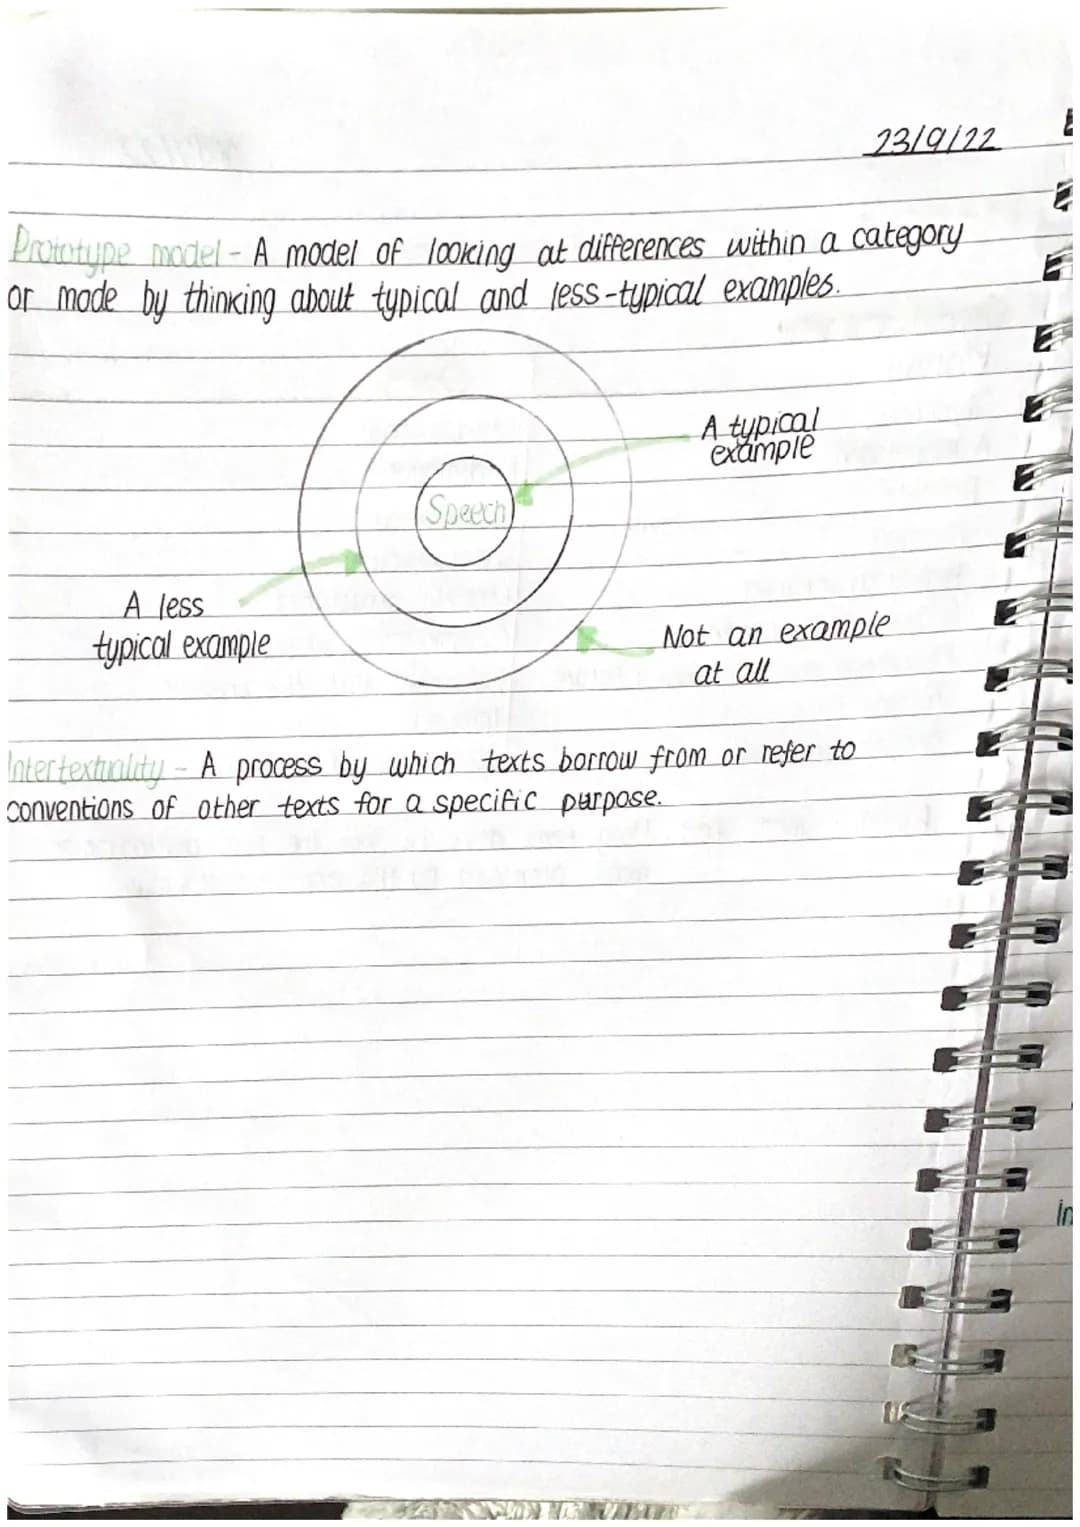 23/9/22
Prototype model - A model of looking at differences within a category
or mode by thinking about typical and less-typical examples.
A typical
example
Speech
A less
typical example
Not an example
at all
Intertextuality - A process by which texts borrow from or refer to
conventions of other texts for a specific purpose.
in